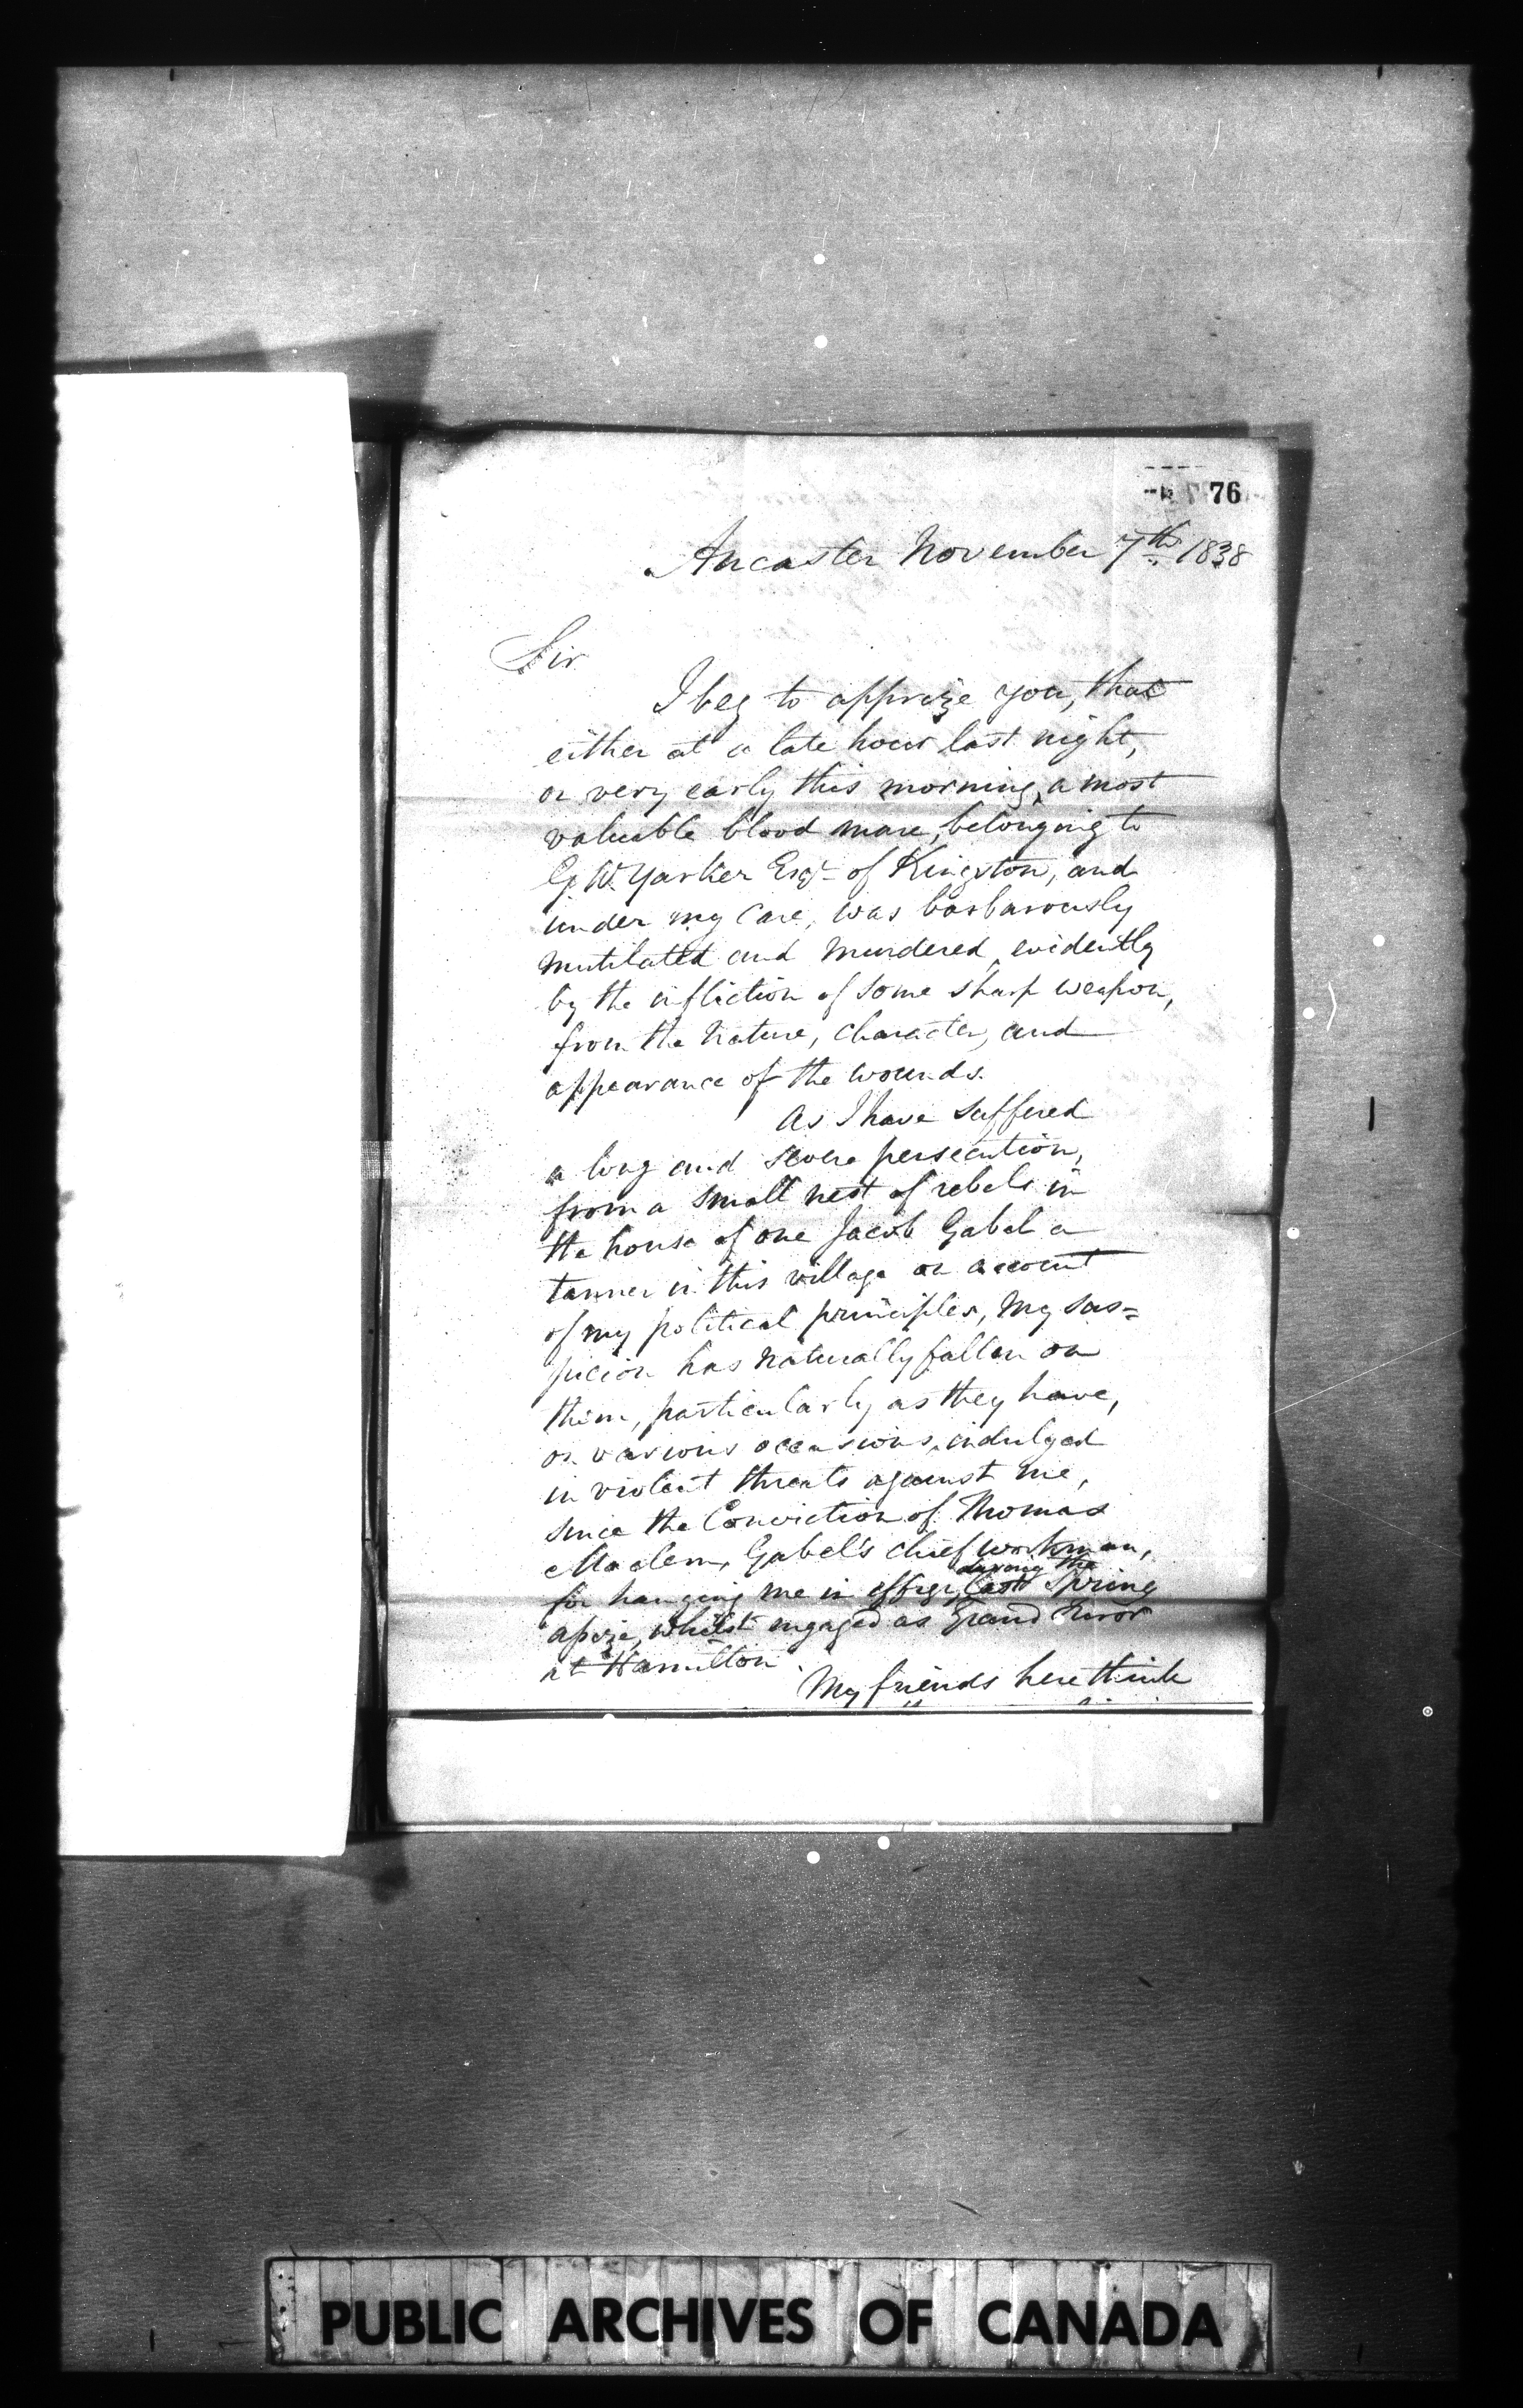 76
Ancaster November 7th 1838
Sir
I beg to apprize you, that
either at a late hour last night,
or very early this morning, a most
valuable blood mare, belonging to
G. W. Yarker Esqr of Kingston, and
under my care, was barbarously
mutilated and murdered, evidently
by the infliction of some sharp weapon,
from the nature, character, and
appearance of the wounds.
As I have suffered
a long and severe persecution,
from a small nest of rebels in
the house of one Jacob Gabel a
tanner in this village on account
of my political principles, my sus=
picion has naturally fallen on
them, particularly as they have,
on various occasions, indulged
in violent threats against me,
since the Conviction of Thomas
Gabel's chief workman,
during the
for hanging me in effigy, last Spring
assize, whilst engaged as Grand Juror
at Hamilton.
My friends here think
PUBLIC ARCHIVES OF CANADA